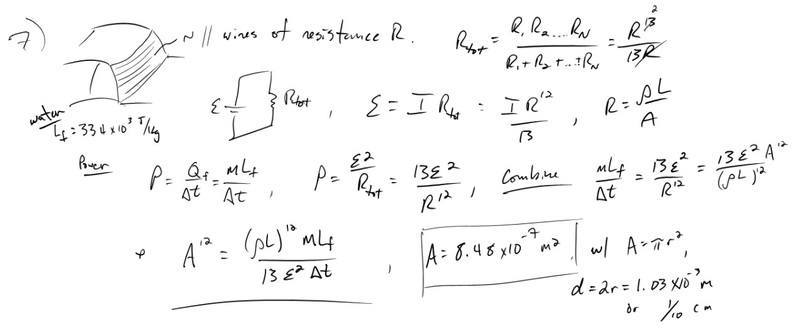 7) N || wires of resistance R. R_tot = R₁R₂....R_N / R₁+R₂+...+R_N = R^13 12 / 13R
water L_f = 334×10³ J/kg
ε R_tot , ε = I R_tot = I R^12 / 13 , R = ρL / A
Power P = Q_f / Δt = mL_f / Δt , P = ε² / R_tot = 13ε² / R^12 , Combine mL_f / Δt = 13ε² / R^12 = 13ε² A^12 / (ρL)^12
A^12 = (ρL)^12 mL_f / 13 ε² Δt , A = 8.48×10⁻⁷ m² , w/ A = πr² ,
d = 2r = 1.03×10⁻³ m
or 1/10 cm